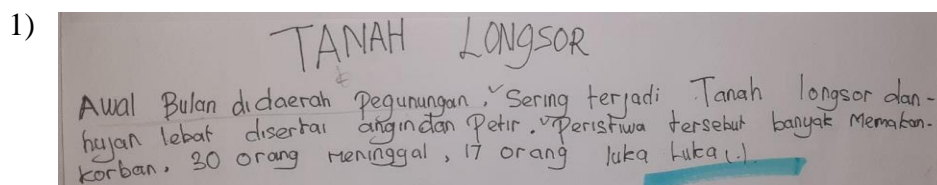 1)
TANAH LONGSOR
Awal Bulan didaerah Pegunungan, Sering terjadi Tanah longsor dan-
hujan lebat disertai angin dan Petir. Peristiwa tersebut banyak Memakan-
korban, 30 orang meninggal, 17 orang luka Luka (.)